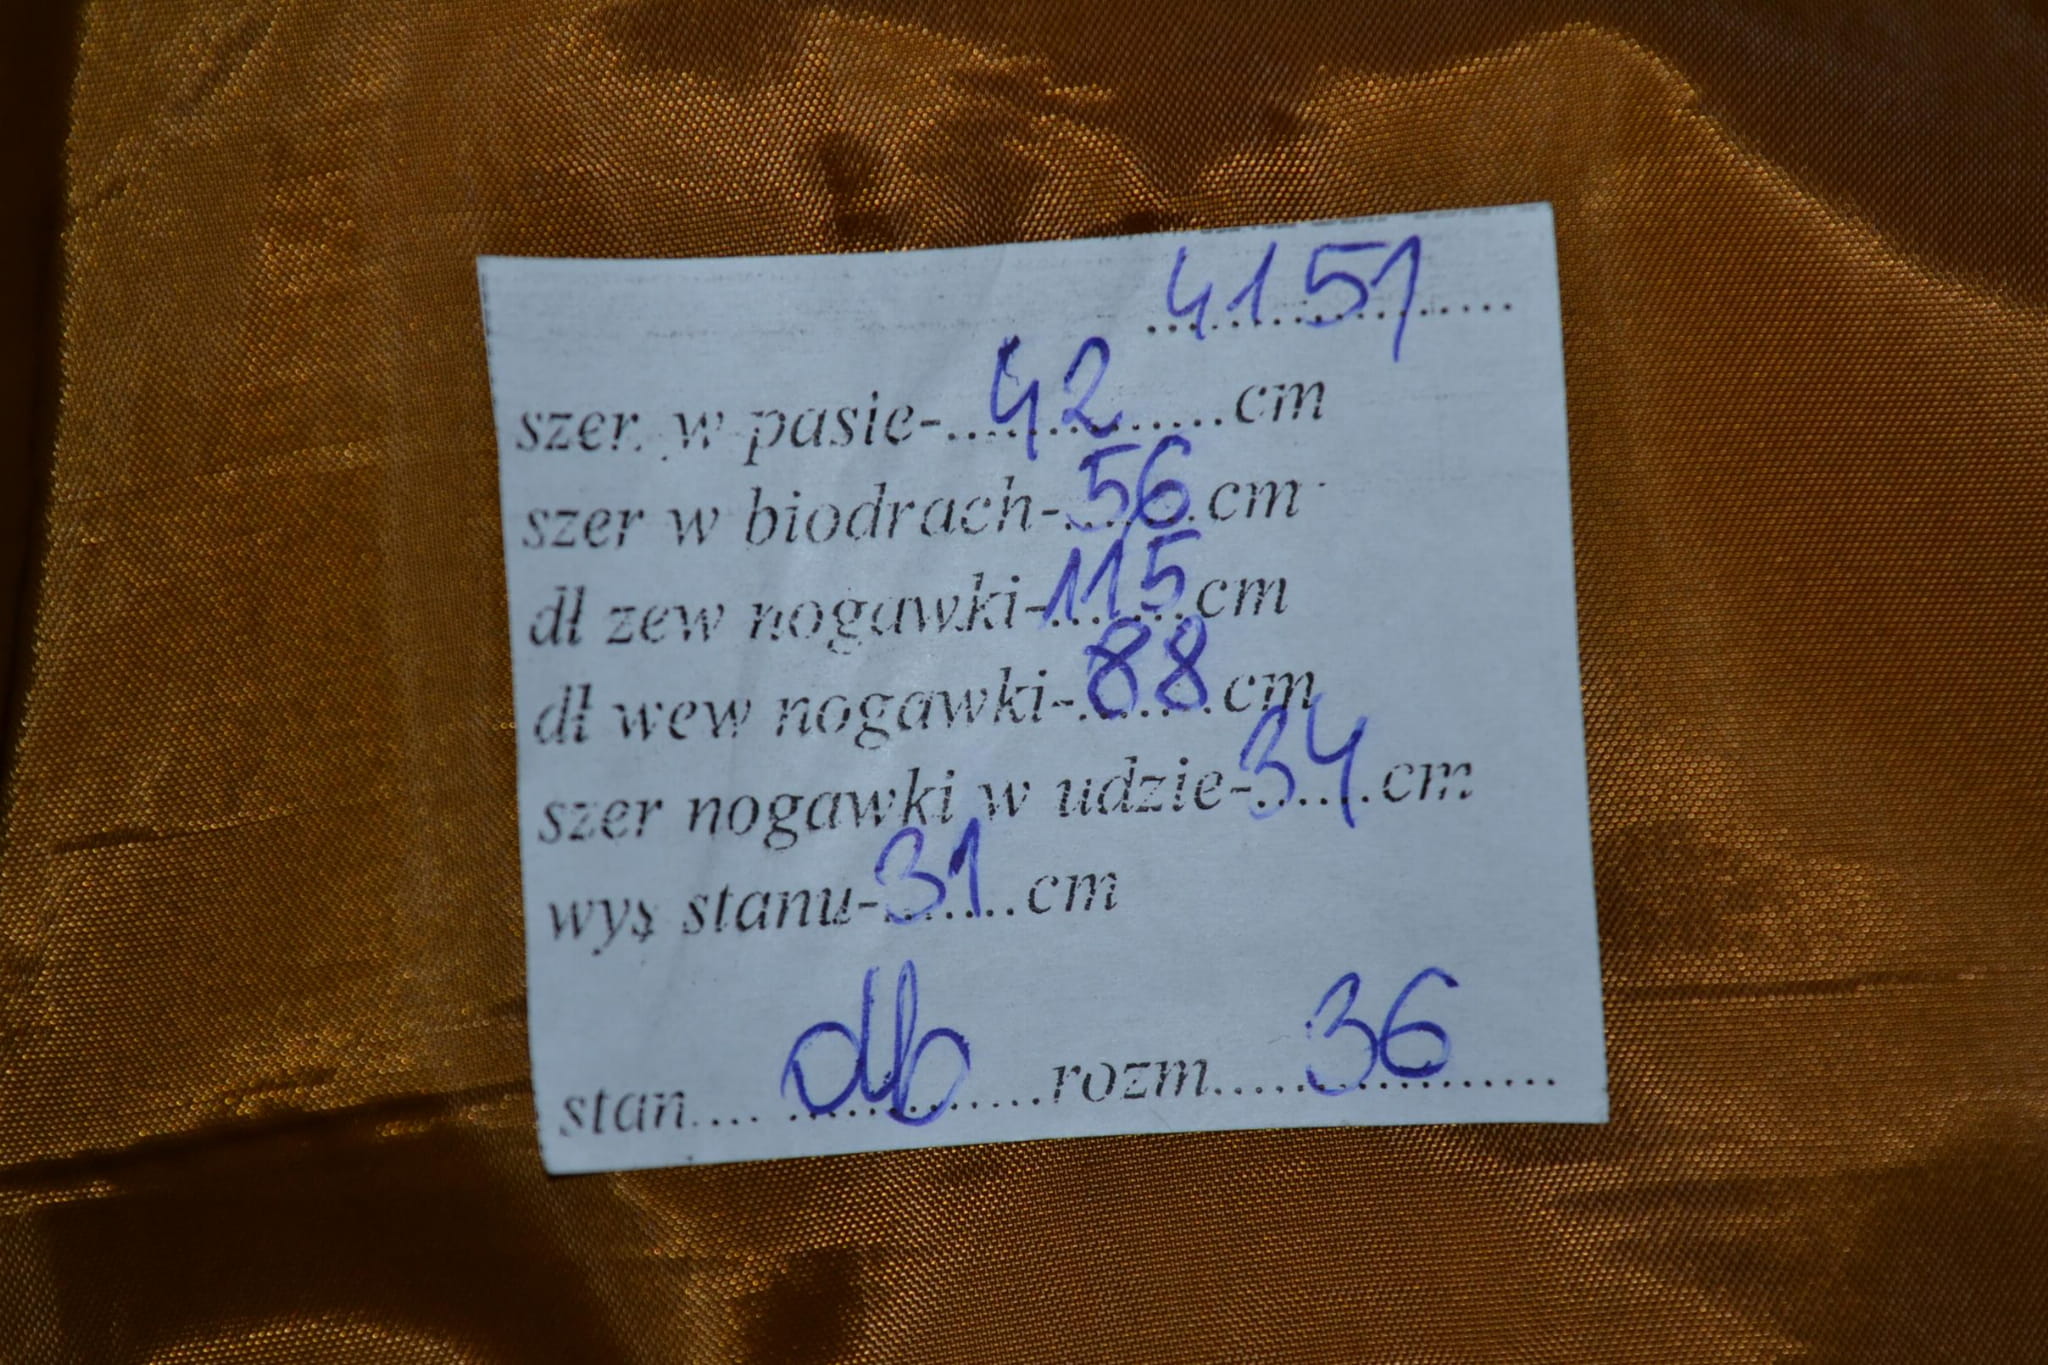 4151
szer. w pasie-42cm
szer w biodrach-56cm
dł zew nogawki-115cm
dł wew nogawki-88cm
szer nogawki w udzie-34cm
wys stanu-31cm
stan db rozm 36